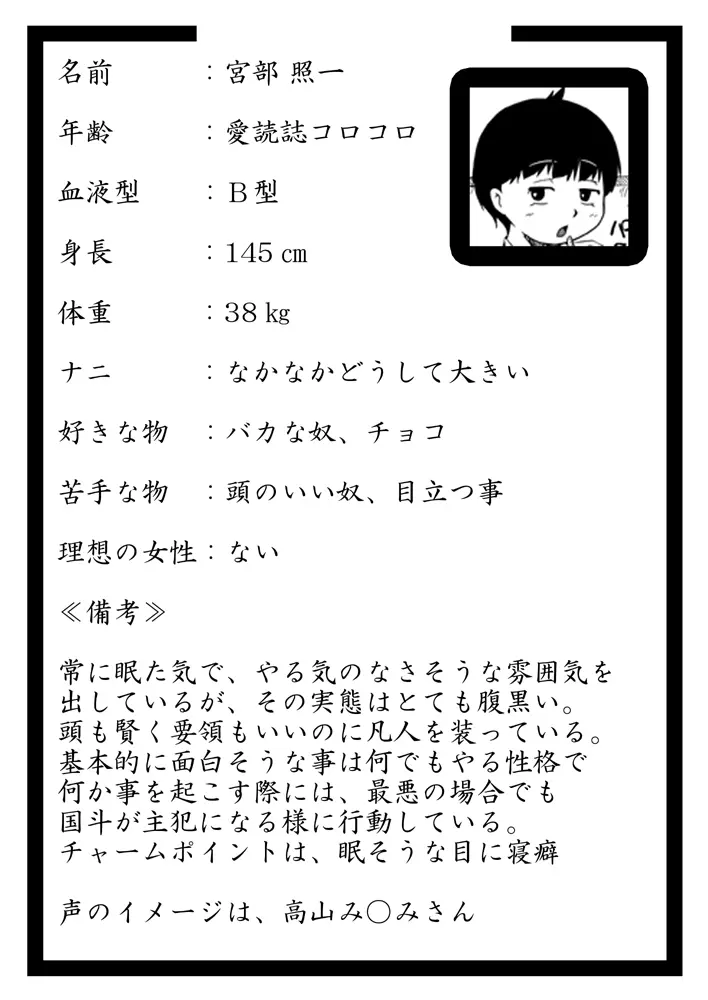 名前　　　：宮部 照一
年齢　　　：愛読誌コロコロ
血液型　　：Ｂ型
身長　　　：145㎝
体重　　　：38㎏
ナニ　　　：なかなかどうして大きい
好きな物　：バカな奴、チョコ
苦手な物　：頭のいい奴、目立つ事
理想の女性：ない
≪備考≫
常に眠た気で、やる気のなさそうな雰囲気を
出しているが、その実態はとても腹黒い。
頭も賢く要領もいいのに凡人を装っている。
基本的に面白そうな事は何でもやる性格で
何か事を起こす際には、最悪の場合でも
国斗が主犯になる様に行動している。
チャームポイントは、眠そうな目に寝癖
声のイメージは、高山み〇みさん